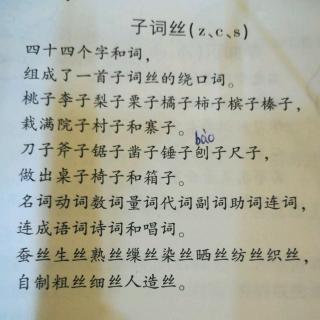 子词丝(z、c、s)
四十四个字和词,
组成了一首子词丝的绕口词。
桃子李子梨子栗子橘子柿子槟子榛子,
栽满院子村子和寨子。
bào
刀子斧子锯子凿子锤子刨子尺子,
做出桌子椅子和箱子。
名词动词数词量词代词副词助词连词,
连成语词诗词和唱词。
蚕丝生丝熟丝缫丝染丝晒丝纺丝织丝,
自制粗丝细丝人造丝。